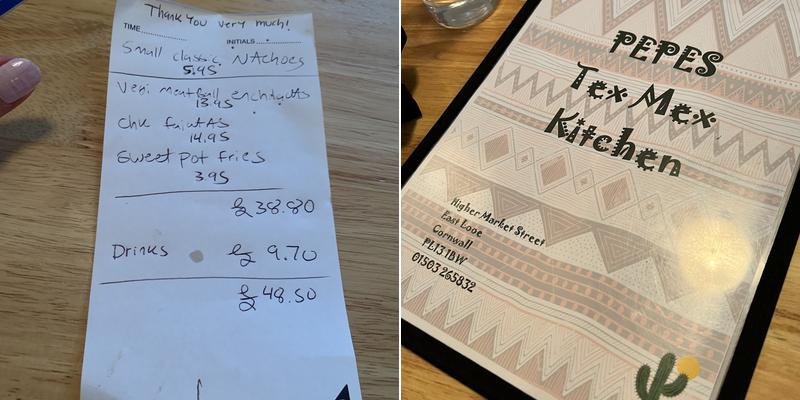 Thank You very much!
TIME............... INITIALS...............
Small classic NAchoes
5.95
Vegi meatball enchiladas
13.95
Chk fajitAs
14.95
Sweet pot fries
3.95
£38.80
Drinks £9.70
£48.50
PEPES
Tex Mex
Kitchen
Higher Market Street
East Looe
Cornwall
PL13 1BW
01503 265832